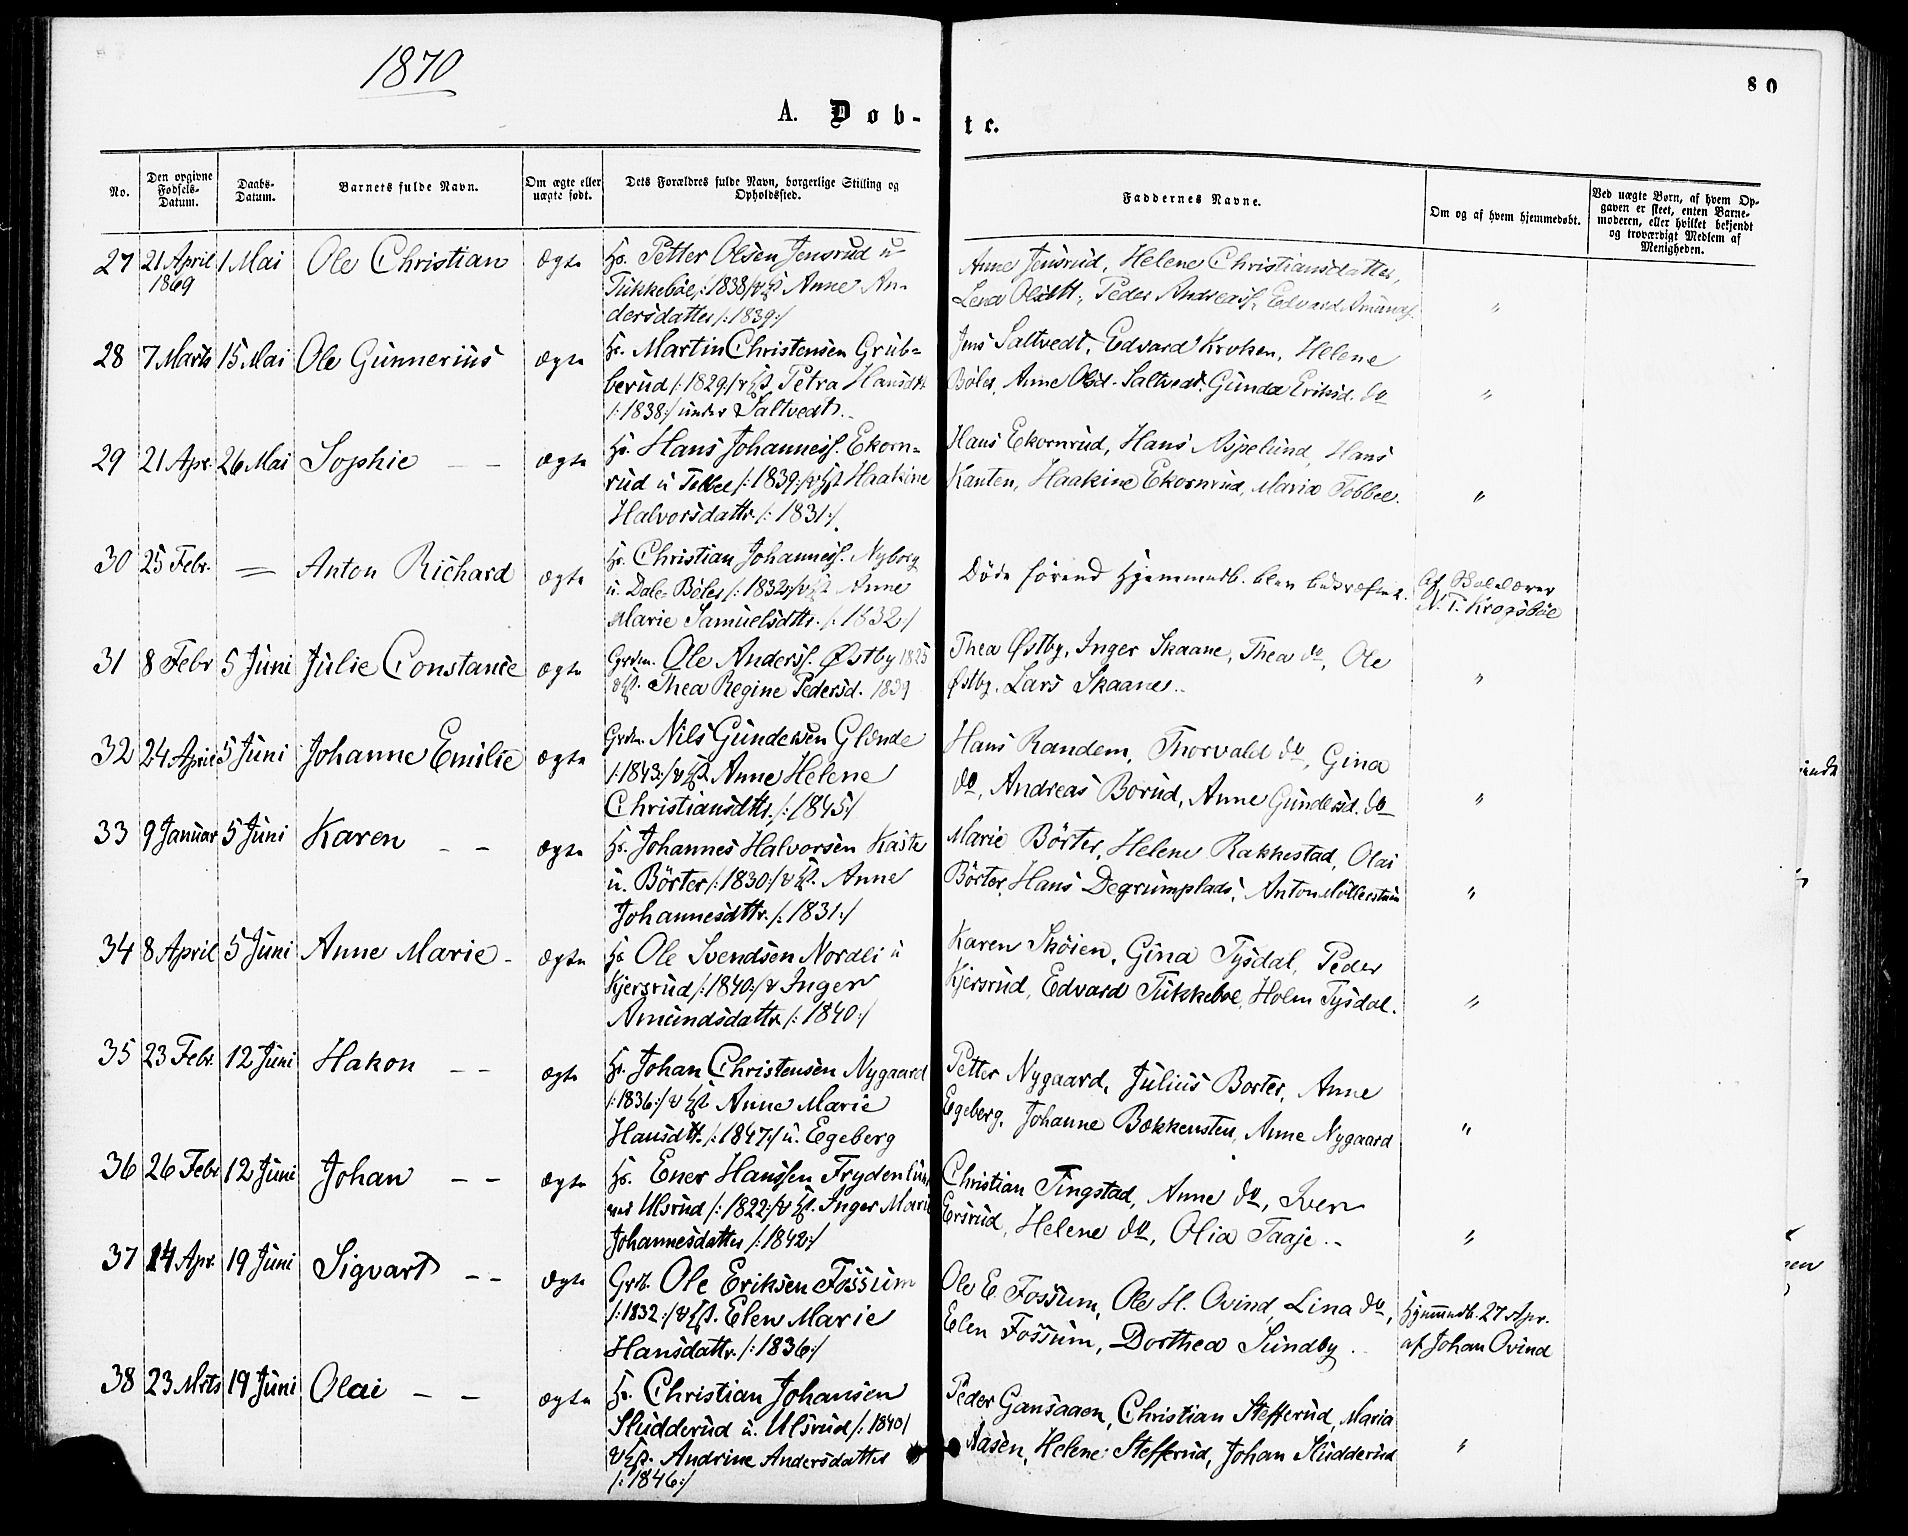 1870
80
A. Døb-
te.
No.
Den opgivne Fødsels-Datum.
Daabs-Datum.
Barnets fulde Navn.
Om ægte eller uægte født.
Dets Forældres fulde Navn, borgerlige Stilling og Opholdssted.
Faddernes Navne.
Om og af hvem hjemmedøbt.
Ved uægte Børn, af hvem Opgaven er skeet, enten Barnemoderen, eller hvilket bekjendt og troværdigt Medlem af Menigheden.
27 21 April 1869 1 Mai Ole Christian ægte
Hs. Petter Olsen Jensrud u
Tukkebøe /:1838:/ & Hst Anne An-
dersdatter /:1839:/
Anne Jensrud, Helene Christiansdatter,
Lena Olsdtt, Peder Andreass., Edvard Amunds. "
28 7 Marts 15 Mai Ole Gunnerius ægte
Hs. Martin Christensen Grub-
berud /:1829:/ & Hst. Petra Hansdtt
/:1838:/ under Saltvedt.
Jens Saltvedt, Edvard Kroken, Helene
Bøler, Anne Olsd. Saltvedt, Gunda Eriksd. do "
29 21 Apr. 26 Mai Sophie - - ægte
Hs. Hans Johanness. Ekorn-
rud u Tobbe /:1839:/ & Hst Haakine
Halvorsdattr. /:1831:/
Hans Ekornrud, Hans Aspelund, Hans
Kanten, Haakine Ekornrud, Maria Tobbee. "
30 25 Febr. = Anton Richard ægte
Hs. Christian Johanness. Nyborg
u. Dale-Bøler /:1832:/ & Hst Anne
Marie Samuelsdttr. /:1832:/
Døde førend Hjemmedb. blev bekræftet.
Af
N. T. Kragsbøe
31 8 Febr 5 Juni Julie Constance ægte
Grdm. Ole Anderss. Østby 1825
& Hst. Thea Regine Pedersd. 1839
Thea Østby, Inger Skaane, Thea do, Ole
Østby, Lars Skaane. "
32 24 April 5 Juni Johanne Emilie ægte
Grdm. Nils Gundersen Glende
/:1843:/ & Hst Anne Helene
Christiansdttr. /:1845:/
Hans Randem, Thorvald do, Gina
do, Andreas Borud, Anne Gundersd. do "
33 9 Januar 5 Juni Karen - - ægte
Hs. Johannes Halvorsen Kaste
u. Börter /:1830:/ & Hst. Anne
Johannesdttr. /:1831:/
Marie Börter, Helene Rakkestad, Olai
Börter, Hans Degrumplads, Anton Möllerstuen "
34 8 April 5 Juni Anne Marie - ægte
Hs Ole Svendsen Nordli u
Kjersrud /:1840:/ & Inger
Amundsdattr. /:1840:/
Karen Skøien, Gina Tysdal, Peder
Kjersrud, Edvard Tukkebøe, Holm Tysdal. "
35 23 Febr. 12 Juni Hakon - - ægte
Hs. Johan Christensen Nygaard
/:1836:/ & Hst Anne Marie
Hansdtt. /:1847:/ u. Egeberg
Petter Nygaard, Julius Borter, Anne
Egeberg, Johanne Bækkensten, Anne Nygaard "
36 26 Febr 12 Juni Johan - - ægte
Hs. Ener Hanssen Frydenlun,
Ulsrud /:1822:/ & Hst. Inger Marie
Johannesdatter /:1842:/
Christian Tingstad, Anne do, Iver
Ersrud, Helene do, Olia Taaje. - "
37 14 Apr. 19 Juni Sigvart - - ægte
Grdb. Ole Eriksen Fossum
/:1832:/ & Hst. Elen Marie
Hansdattr. /:1836:/
Ole E. Fossum, Ole H. Ovind, Lina do,
Elen Fossum, Dorthea Sundby.
Hjemmedb. 27 Apr.
af Johan Ovind
38 23 Mrts 19 Juni Olai - - ægte
Hs. Christian Johansen
Sludderud u. Ulsrud /:1840/
& Hst. Andrine Andersdatter
/:1846:/
Peder Gansaaen, Christian Stefferud, Maria
Aasen, Helene Stefferud, Johan Sludderud "